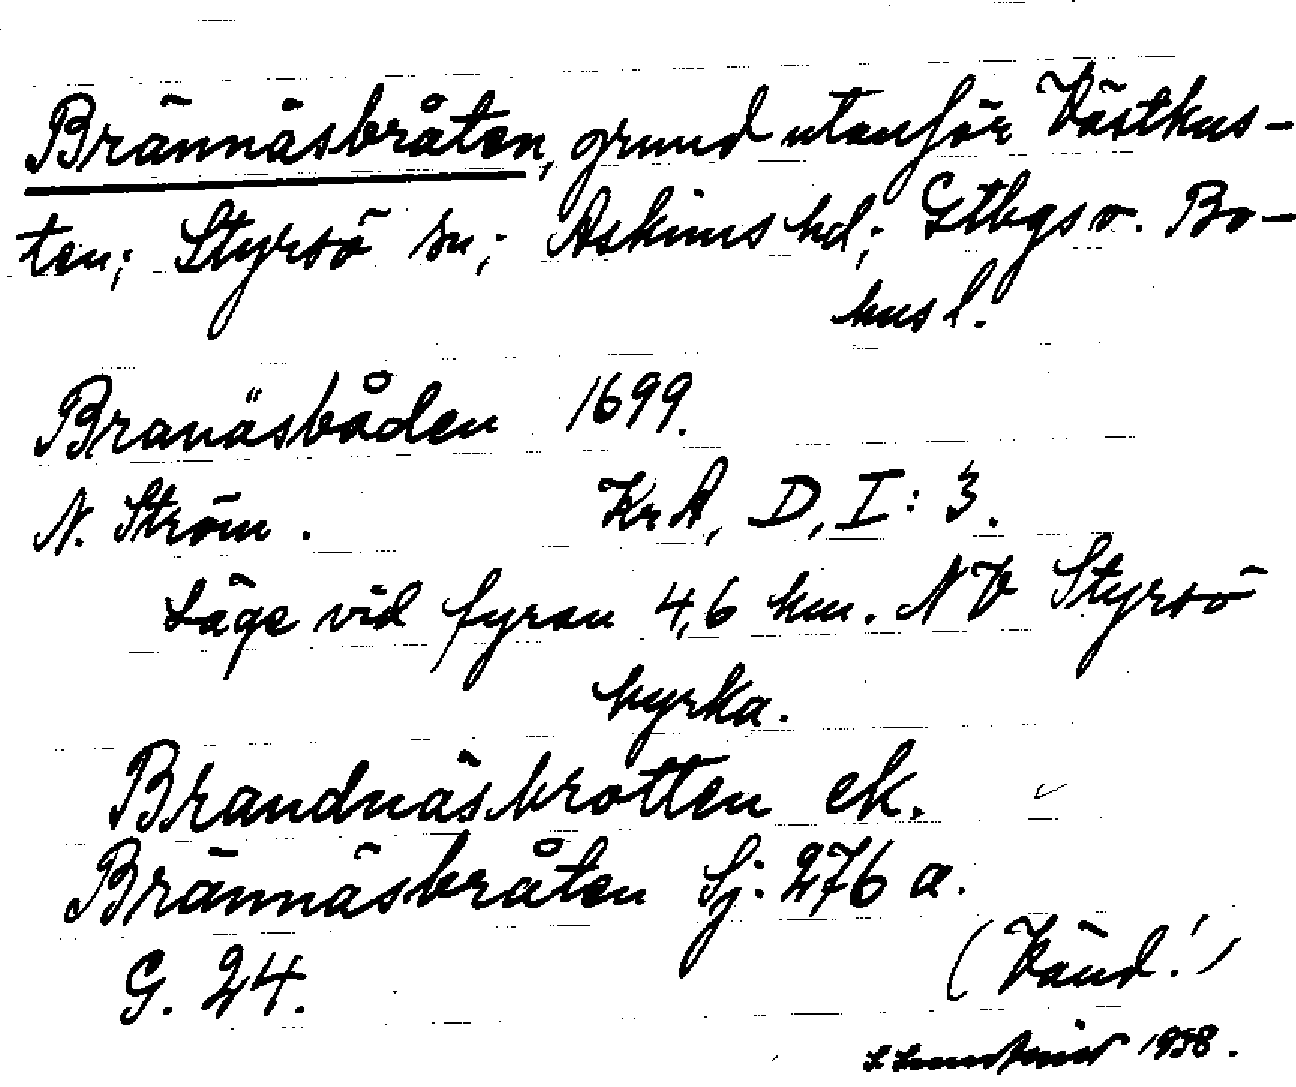 Brännäsbråten, grund utanför Västkus-
ten; Styrsö sn; Askims hd; Gtbgs o. Bo-
hus l.
Branäsbåden 1699.
N. Ström. KrA, D, I: 3.
Läge vid fyran 4,6 km. NV Styrsö
kyrka.
Brandnäsbrotten ek.
Brännäsbråten Sj: 276 a.
G. 24.
(Vänd!)
1938.